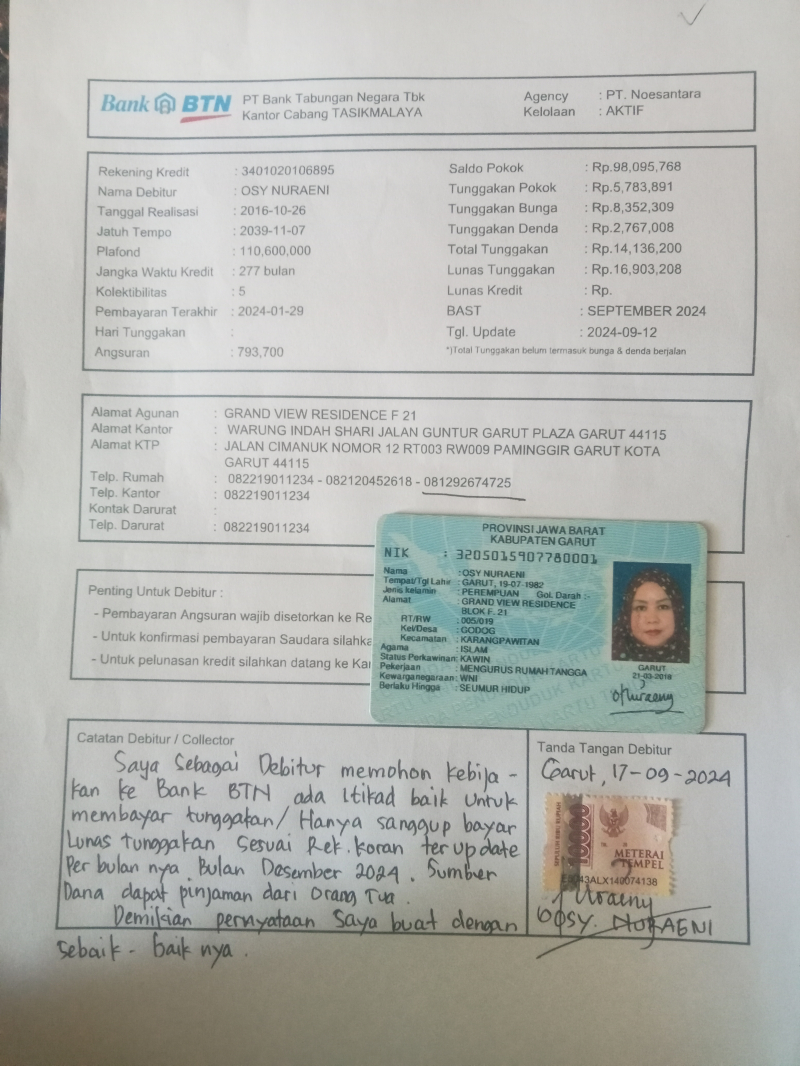 Bank BTN PT Bank Tabungan Negara Tbk
Kantor Cabang TASIKMALAYA
Agency : PT. Noesantara
Kelolaan : AKTIF
Rekening Kredit : 3401020106895
Nama Debitur : OSY NURAENI
Tanggal Realisasi : 2016-10-26
Jatuh Tempo : 2039-11-07
Plafond : 110,600,000
Jangka Waktu Kredit : 277 bulan
Kolektibilitas : 5
Pembayaran Terakhir : 2024-01-29
Hari Tunggakan :
Angsuran : 793,700
Saldo Pokok : Rp.98,095,768
Tunggakan Pokok : Rp.5,783,891
Tunggakan Bunga : Rp.8,352,309
Tunggakan Denda : Rp.2,767,008
Total Tunggakan : Rp.14,136,200
Lunas Tunggakan : Rp.16,903,208
Lunas Kredit : Rp.
BAST : SEPTEMBER 2024
Tgl. Update : 2024-09-12
*)Total Tunggakan belum termasuk bunga & denda berjalan
Alamat Agunan : GRAND VIEW RESIDENCE F 21
Alamat Kantor : WARUNG INDAH SHARI JALAN GUNTUR GARUT PLAZA GARUT 44115
Alamat KTP : JALAN CIMANUK NOMOR 12 RT003 RW009 PAMINGGIR GARUT KOTA
GARUT 44115
Telp. Rumah : 082219011234 - 082120452618 - 081292674725
Telp. Kantor : 082219011234
Kontak Darurat :
Telp. Darurat : 082219011234
PROVINSI JAWA BARAT
KABUPATEN GARUT
NIK : 3205015907780001
Nama : OSY NURAENI
Tempat/Tgl Lahir : GARUT, 19-07-1982
Jenis kelamin : PEREMPUAN Gol. Darah :-
Alamat : GRAND VIEW RESIDENCE
BLOK F. 21
RT/RW : 005/019
Kel/Desa : GODOG
Kecamatan : KARANGPAWITAN
Agama : ISLAM
Status Perkawinan: KAWIN
Pekerjaan : MENGURUS RUMAH TANGGA
Kewarganegaraan: WNI
Berlaku Hingga : SEUMUR HIDUP
GARUT
21-03-2018
Penting Untuk Debitur :
- Pembayaran Angsuran wajib disetorkan ke Re
- Untuk konfirmasi pembayaran Saudara silahka
- Untuk pelunasan kredit silahkan datang ke Ka
Catatan Debitur / Collector
Saya Sebagai Debitur memohon kebija -
kan ke Bank BTN ada Itikad baik untuk
membayar tunggakan / Hanya sanggup bayar
Lunas tunggakan Sesuai Rek. koran ter update
Per bulan nya. Bulan Desember 2024. Sumber
Dana dapat pinjaman dari Orang Tua.
Demikian pernyataan Saya buat dengan
sebaik - baik nya.
Tanda Tangan Debitur
Garut, 17-09-2024
10000
METERAI
TEMPEL
OSY. NURAENI